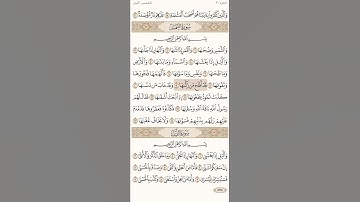 وَٱلَّذِينَ كَفَرُوا۟ بِـَٔايَٰتِنَا هُمْ أَصْحَٰبُ ٱلْمَشْـَٔمَةِ ١٩ عَلَيْهِمْ نَارٌ مُّؤْصَدَةٌۢ ٢٠
سُورَةُ الشَّمْسِ
بِسْمِ ٱللَّهِ ٱلرَّحْمَٰنِ ٱلرَّحِيمِ
وَٱلشَّمْسِ وَضُحَىٰهَا ١ وَٱلْقَمَرِ إِذَا تَلَىٰهَا ٢ وَٱلنَّهَارِ إِذَا جَلَّىٰهَا
٣ وَٱلَّيْلِ إِذَا يَغْشَىٰهَا ٤ وَٱلسَّمَآءِ وَمَا بَنَىٰهَا ٥ وَٱلْأَرْضِ
وَمَا طَحَىٰهَا ٦ وَنَفْسٍ وَمَا سَوَّىٰهَا ٧ فَأَلْهَمَهَا فُجُورَهَا
وَتَقْوَىٰهَا ٨ قَدْ أَفْلَحَ مَن زَكَّىٰهَا ٩ وَقَدْ خَابَ مَن دَسَّىٰهَا
١٠ كَذَّبَتْ ثَمُودُ بِطَغْوَىٰهَآ ١١ إِذِ ٱنۢبَعَثَ أَشْقَىٰهَا ١٢ فَقَالَ لَهُمْ
رَسُولُ ٱللَّهِ نَاقَةَ ٱللَّهِ وَسُقْيَٰهَا ١٣ فَكَذَّبُوهُ فَعَقَرُوهَا فَدَمْدَمَ
عَلَيْهِمْ رَبُّهُم بِذَنۢبِهِمْ فَسَوَّىٰهَا ١٤ وَلَا يَخَافُ عُقْبَٰهَا ١٥
سُورَةُ اللَّيْلِ
بِسْمِ ٱللَّهِ ٱلرَّحْمَٰنِ ٱلرَّحِيمِ
وَٱلَّيْلِ إِذَا يَغْشَىٰ ١ وَٱلنَّهَارِ إِذَا تَجَلَّىٰ ٢ وَمَا خَلَقَ ٱلذَّكَرَ وَٱلْأُنثَىٰ ٣
إِنَّ سَعْيَكُمْ لَشَتَّىٰ ٤ فَأَمَّا مَنْ أَعْطَىٰ وَٱتَّقَىٰ ٥ وَصَدَّقَ بِٱلْحُسْنَىٰ ٦
فَسَنُيَسِّرُهُۥ لِلْيُسْرَىٰ ٧ وَأَمَّا مَنۢ بَخِلَ وَٱسْتَغْنَىٰ ٨ وَكَذَّبَ بِٱلْحُسْنَىٰ ٩
٥٩٥